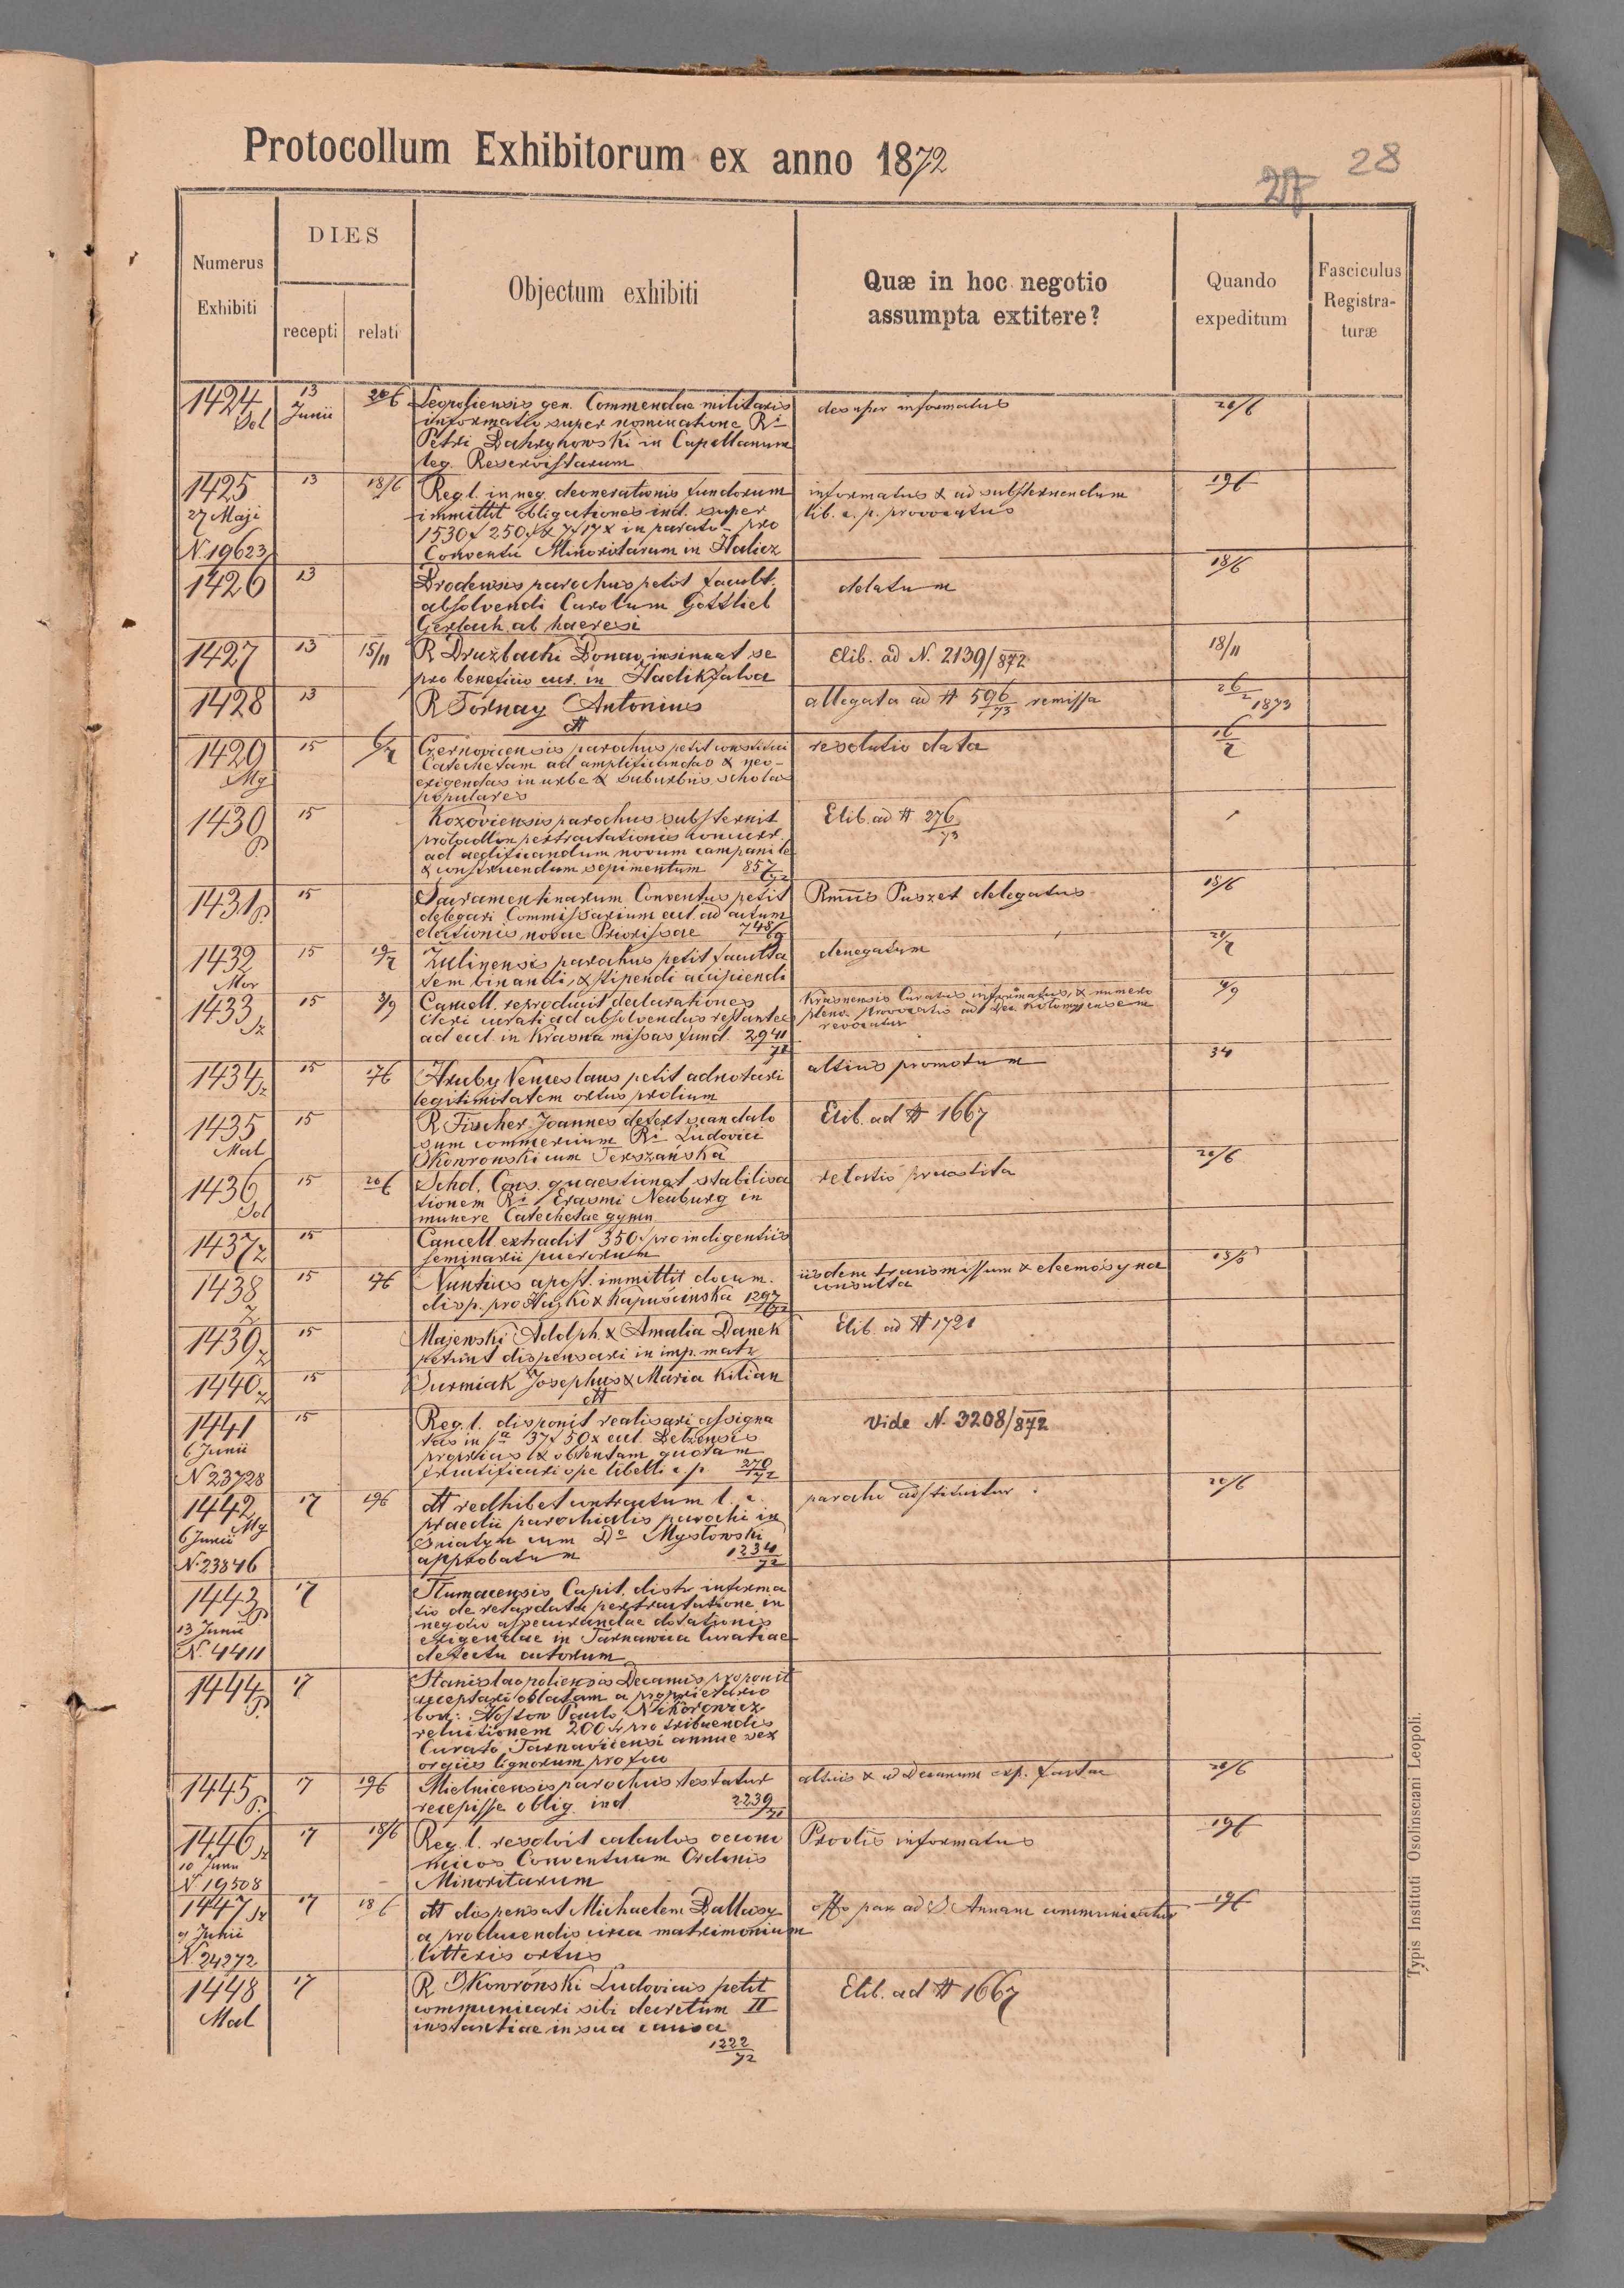 Protocollum Exhibitorum ex anno 1872
28
Numerus Exhibiti
DIES
recepti
relati
Objectum exhibiti
Quæ in hoc negotio assumpta extitere?
Quando expeditum
Fasciculus Registra-turæ
1424
13 Junii
20/6
Leopoliensis gen. Commendae militaris
informatio super nominatione Ri
Petri in Capellanum
leg. Reservistarum
desuper informatus
20/6
1425
27 Maji
N. 19623
13
18/6
Reg. l. in neg. deonerationis fundorum
immittit obligationes ind. super
1530 f 250 f & 7 f 17 x in parato pro
Conventu Minoritarum in Halicz
informatus & ad substernendum
lib. c. p. provocatus
19/6
1426
13
Brodensis parochus petit facult.
absolvendi Carolum Gottlieb
Gerlach ab haeresi
delatum
18/6
1427
13
15/11
R Družbacki Donat, insinuat se
pro beneficio cur. in Hadikfalva
Elib. ad N. 2139/872
18/11
1428
13
R Tornay Antonius
dtt
allegata ad # 596/73 remissa
26/2 1873
1429
My
15
6/7
Czernoviensis parochus petit constitui
Catechetam ad amplificandas & neo-
erigendas in urbe & suburbiis scholas
populares
resolutio data
16/7
1430
P.
15
Kozoviensis parochus substernit
protocollon pertractationis concurr.
ad aedificandum novum campanile
& construendum sepimentum 857/72
Elib. ad # 276/73
1431 P.
15
Sacramentinarum Conventus petit
delegari Commissarium eccl. ad actum
electionis novae Priorissae 748/69
Rmus Puszet delegatus
18/6
1432
Mor
15
19/7
Żulinensis parochus petit faculta
tem binandi, & stipendi accipiendi
denegatum
20/7
1433
Sz
15
3/9
Cancell. reproducit declarationes
cleri curati ad absolvendas restantes
ad eccl. in Krasna missas fund. 2941/71
Krasnensis Curatus informatus, & numero
revocatur
9/9
1434 Sz
15
17/6
Hruby Venceslaus petit adnotari
legitimitatem ortus prolium
altius promotum
1435
Mal
15
R Fischer Joannes defert scandalo
sum commercium Ri Ludovici
Skowronski cum Terszańska
Elib. ad # 1667
1436
Sol
15
20/6
Schol. Cons. quaestionat stabilisa
tionem Ri Erasmi Neuburg in
munere Catechetae gymn
relatio praestita
20/6
1437 z
15
Cancell. extradit 350 f pro indigentiis
seminarii puerorum
1438
z
15
17/6
Nuntius apost. immittit docum.
disp. pro Hajko & Kapuścinska 1297/72
iisdem transmissum & eleemosyna
consulta
18/6
1439 z
15
Majewski Adolph & Amalia Danek
petunt dispensari in imp. matr
Elib. ad # 1721
1440 z
15
Surmiak Josephus & Maria Kilian
dtt
1441
6 Junii
N 23728
15
Reg. l. disponit realisari assigna
tas in sa 37 f 50 x eccl. Belzensis
proprias & obtentam quotam
fructificari ope libelli c. p. 270/72
vide N. 3208/872
1442
My
6 Junii
N. 23846
17
19/6
dtt redhibet contractum l. c.
praedii parochialis parochi in
Sniatyn cum Do Mysłowski
approbatum 1234/72
parocho adstituitur
20/6
1443
P
13 Junii
N. 4411
17
Tlumacensis Capit. distr informa
tio de retardata pertractatione in
negotio assecurandae dotationis
erigendae in Tarnawica Curatiae
defectu actorum
1444 P.
17
Stanislaopoliensis Decanus proponit
acceptari oblatam a proprietario
bon: Hoston Paulo Nikorowicz
reluitionem 200 f pro tribuendis
Curato Tarnavicensi annue sex
orgiis lignorum pro foco
1445 P.
17
19/6
Mielnicensis parochus testatur
recepisse oblig. ind. 2239/71
altius & ad Decanum exp. factae
20/6
1446 Sz
10 Junii
N 19508
17
18/6
Reg. l. resolvit calculos oecono
micos Conventuum Ordinis
Minoritarum
Provlis informatus
19/6
1447 Sz
9 Junii
N. 24272
17
18/6
dtt dispensat Michaelem
a producendis circa matrimonium
litteris ortus
Offo par ad S Annam communicatur
19/6
1448
Mal
17
R Skowroński Ludovicus petit
communicari sibi decretum II
instantiae in sua causa
1222/72
Elib. ad # 1667
Typis Instituti Ossolinsciani Leopoli.